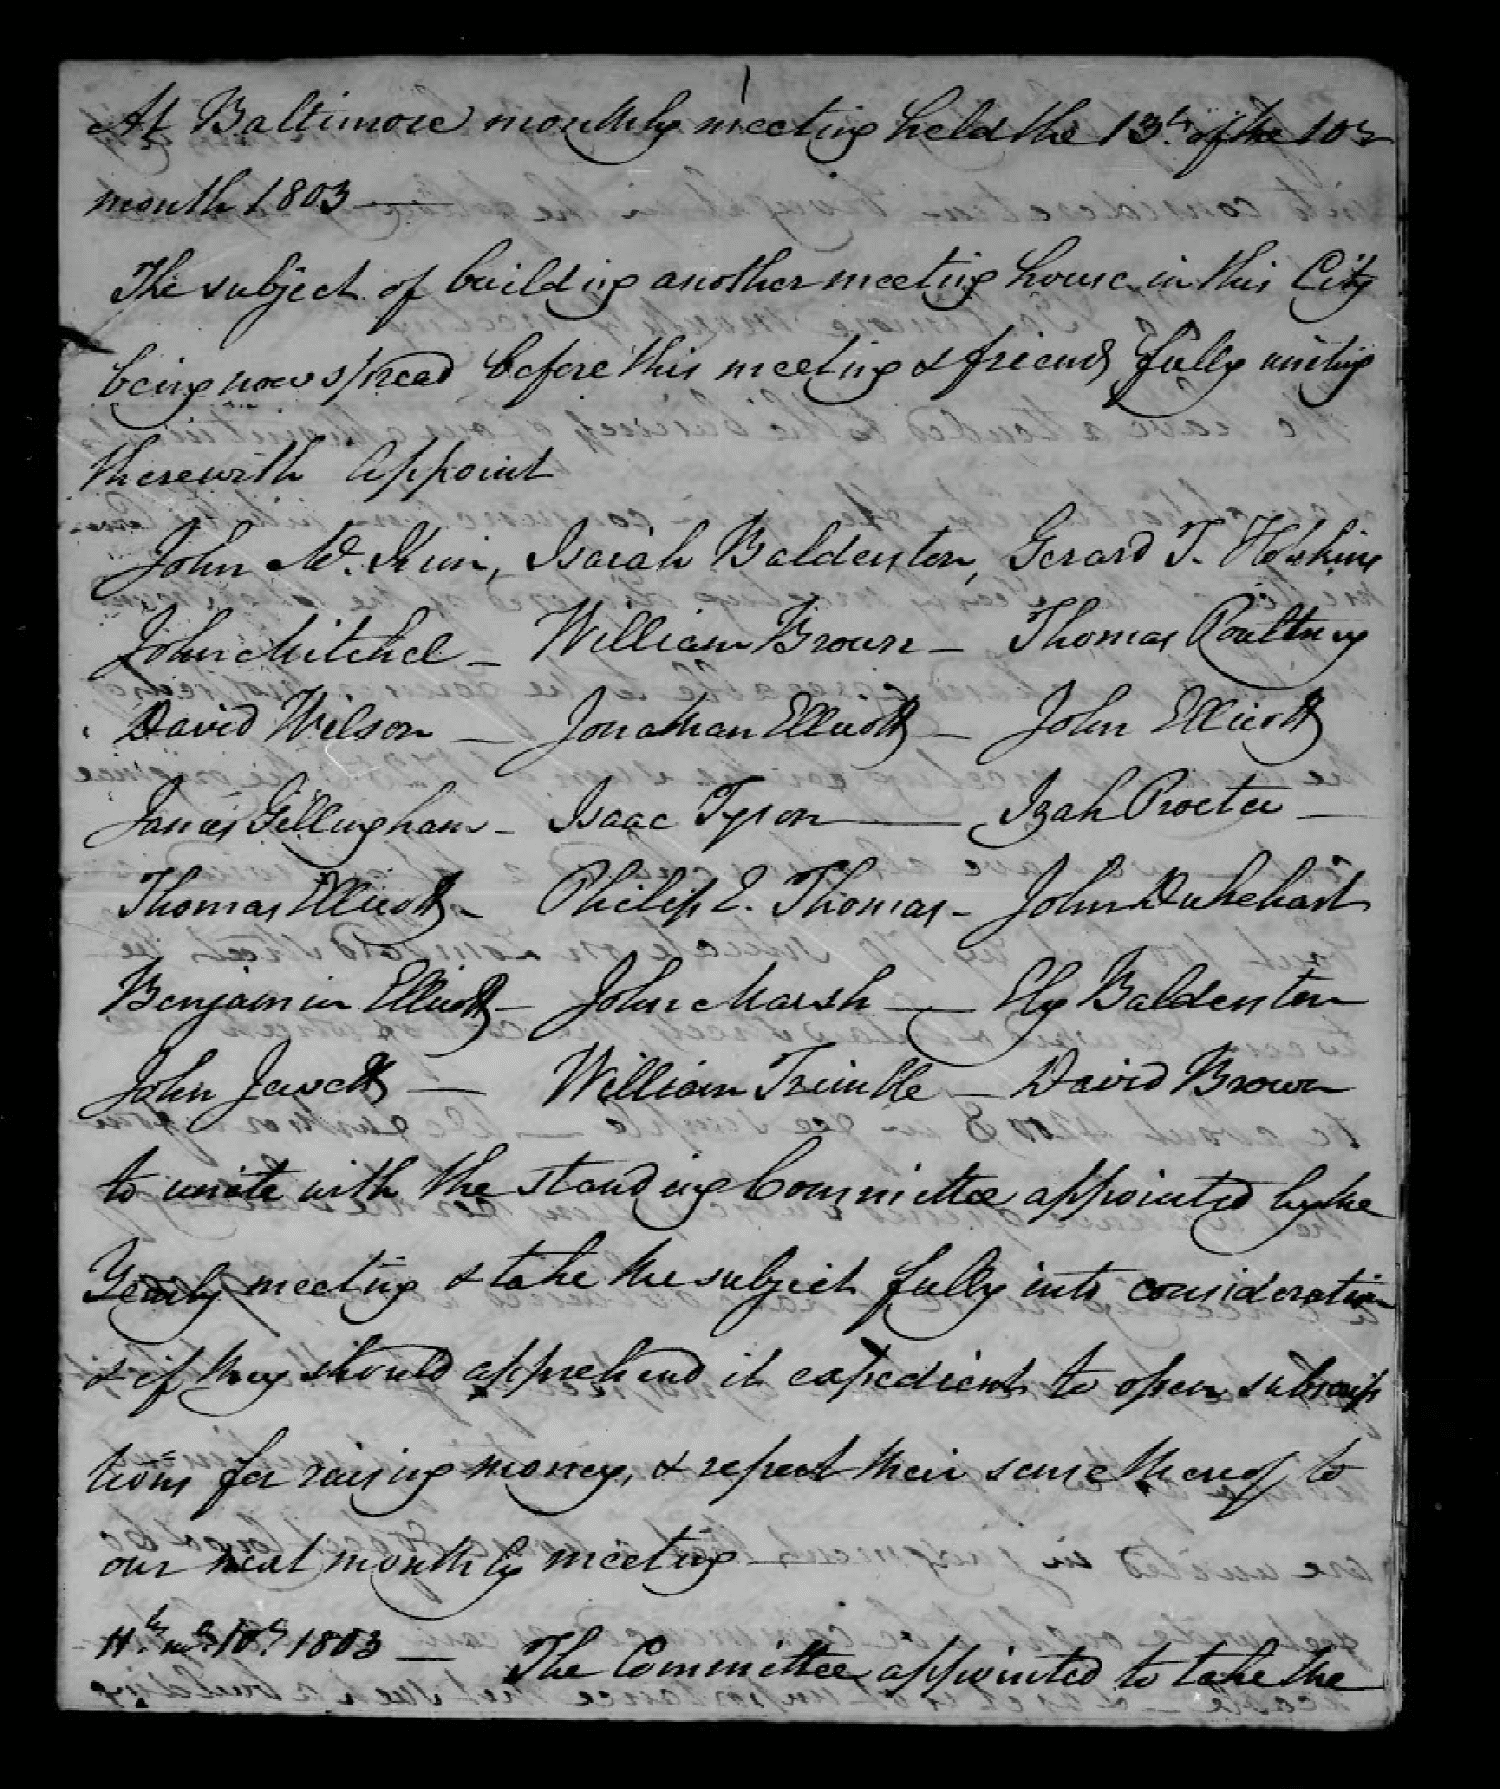 At Baltimore monthly meeting held the 13th. of the 10th
month 1803 —
The subject of building another meeting house in this City
being now spread before this meeting & friends fully uniting
therewith appoint
John Mc. Kim, Isaiah Balderston, Gerard T. Hopkins
John Mitchel — William Brown — Thomas Poultney
David Wilson — Jonathan Ellicott — John Ellicott
James Gillingham — Isaac Tyson — Izah Procter —
Thomas Ellicott — Philip E. Thomas — John Dukehart
Benjamin Ellicott — John Marsh — Ely Balderston
John Jewett — William Trimble — David Brown
to unite with the standing Committee appointed by the
Yearly meeting & take the subject fully into consideration
& if they should apprehend it expedient to open subscrip
tions for raising money, & report their sense thereof to
our next monthly meeting —
11th. mo. 10th. 1803 — The Committee appointed to take the